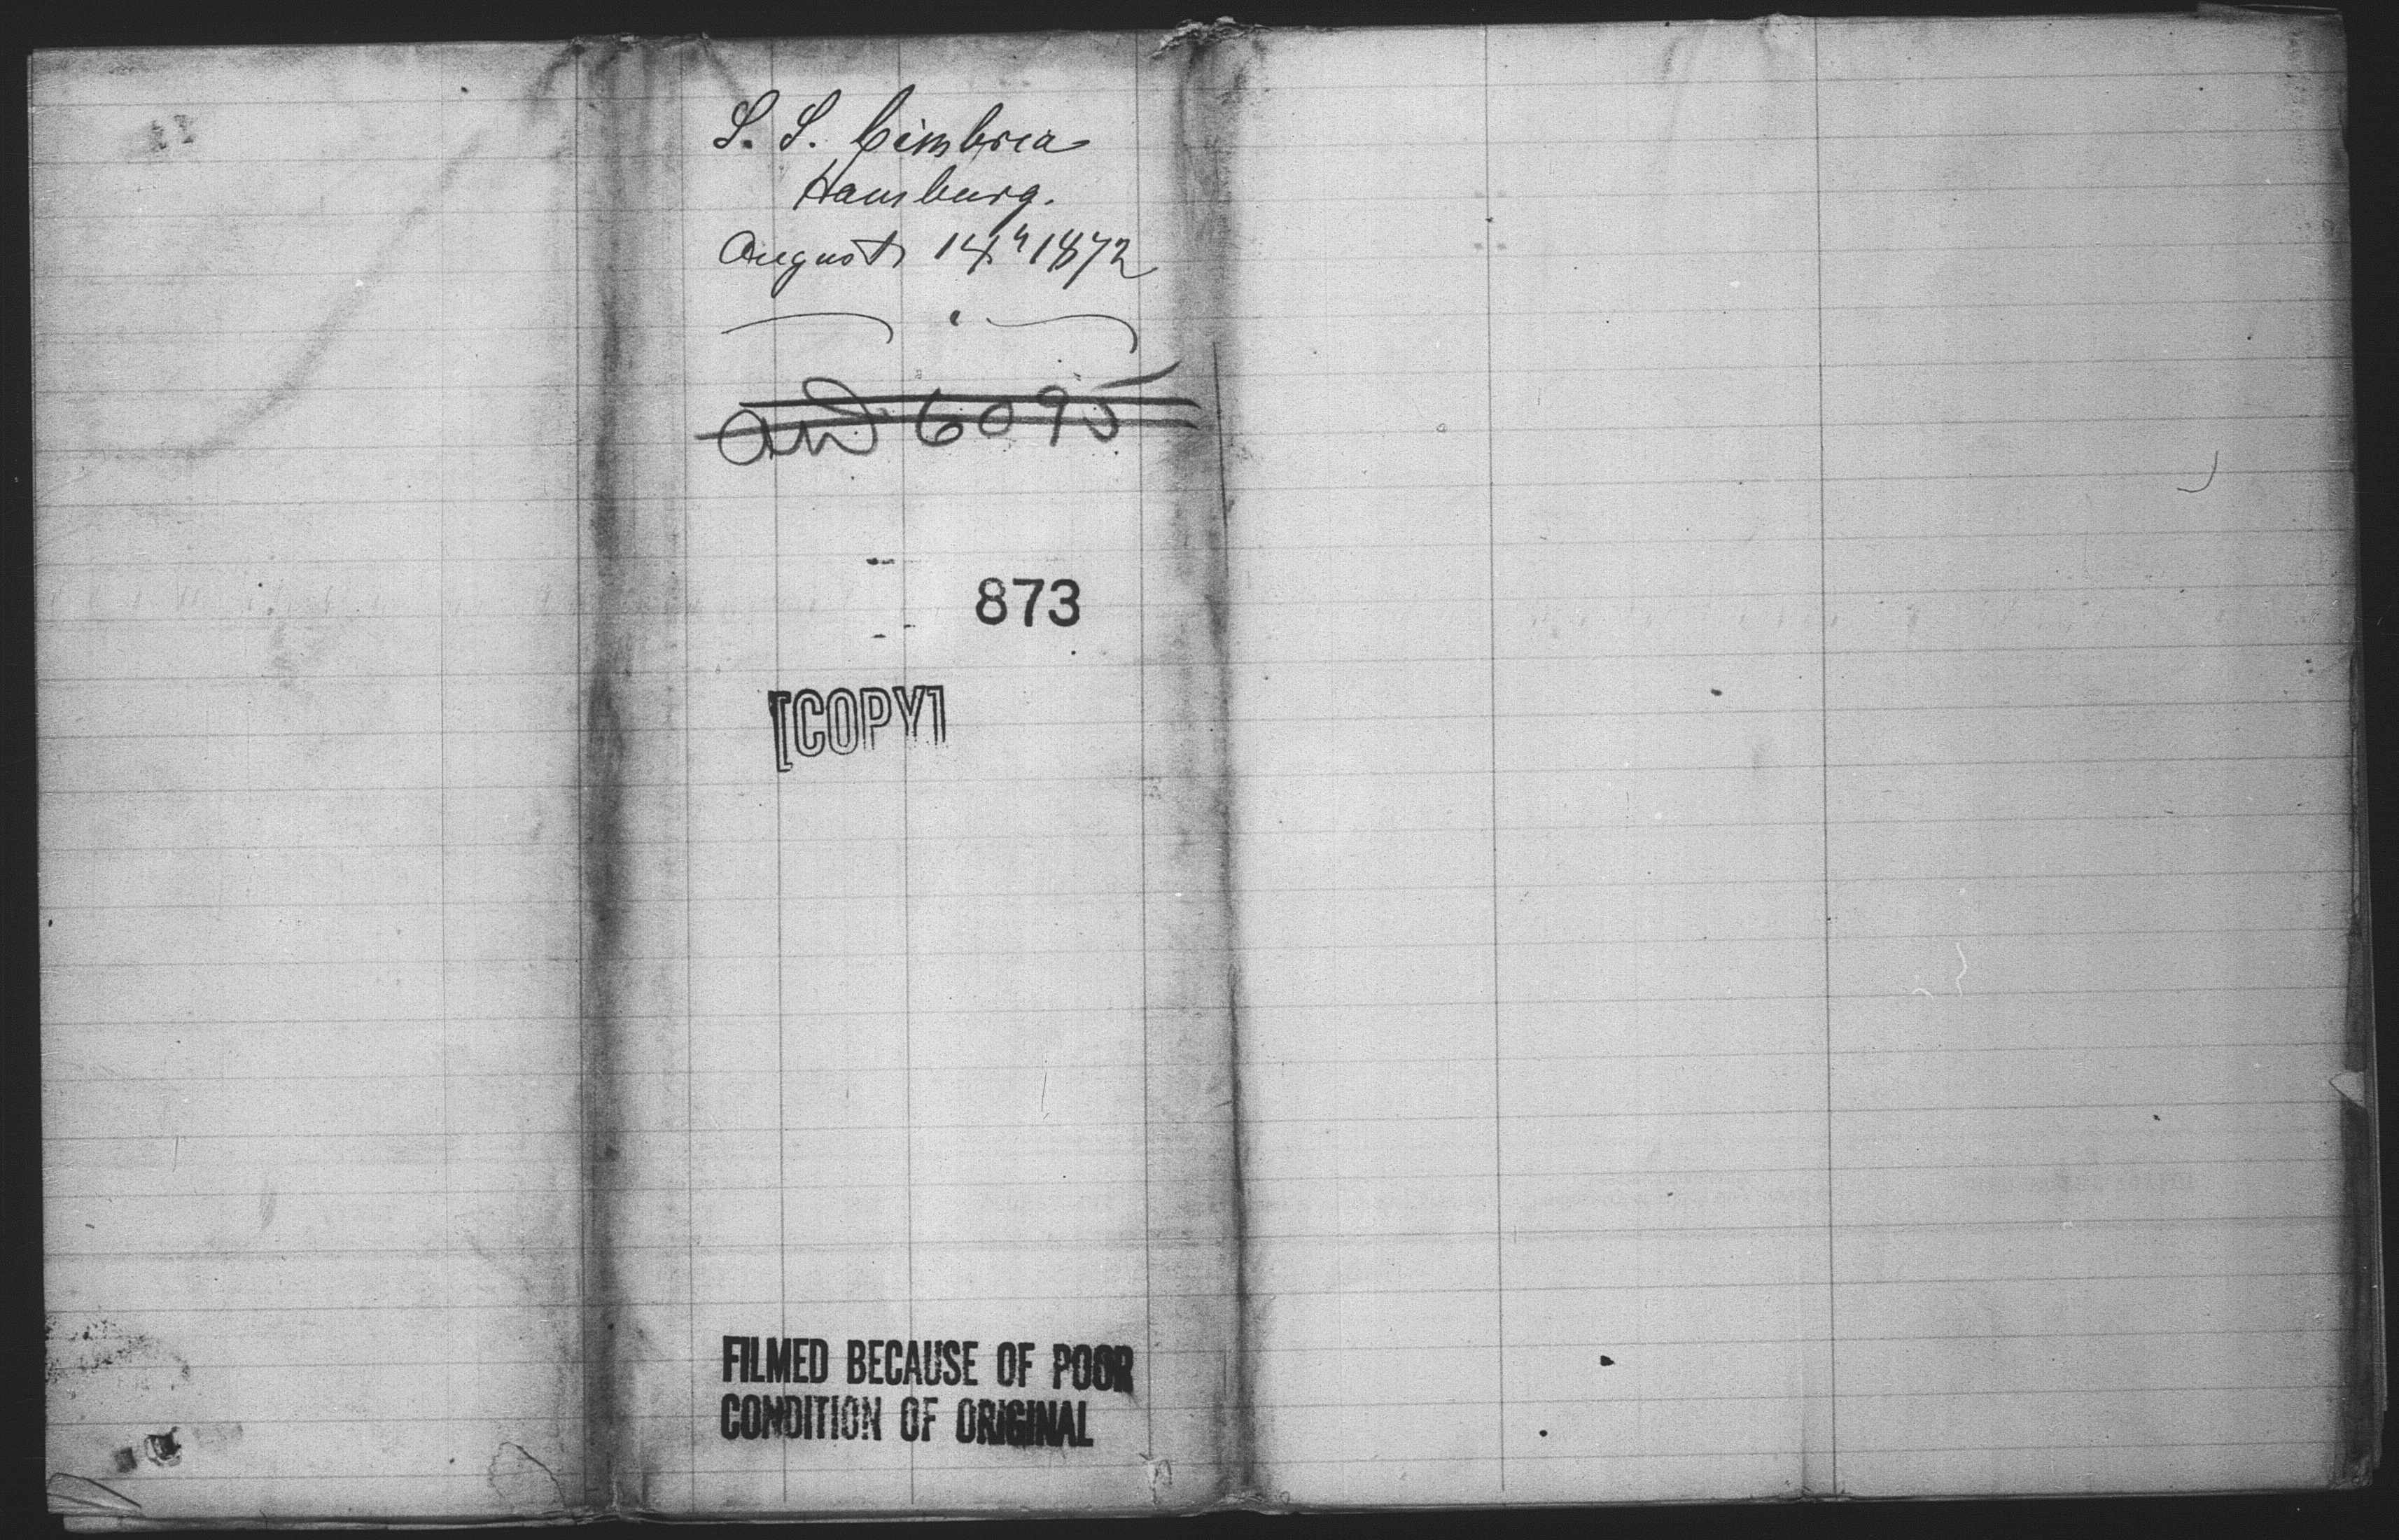 S. S. Cimbria
Hamburg.
August 14th 1872
6095
873
[COPY]
FILMED BECAUSE OF POOR
CONDITION OF ORIGINAL